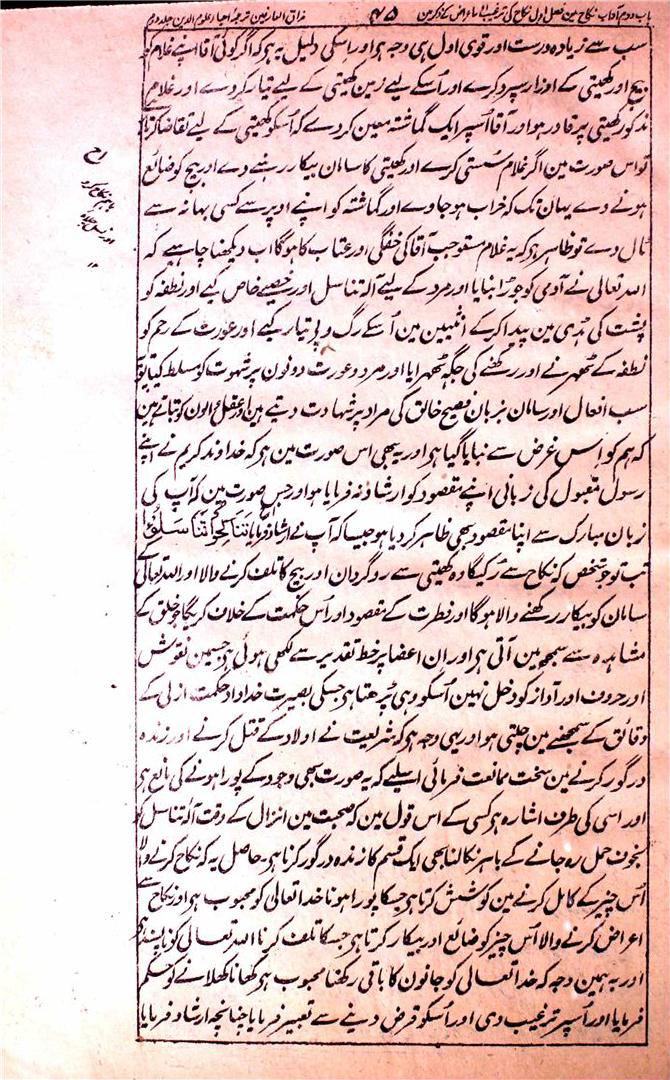 باب دوم آداب نکاح مین فصل اول نکاح کی ترغیب اور اعراض کے ذکر مین ۴۵ مذاق العارفین ترجمہ احیاء علوم الدین جلد دوم
سب سے زیادہ درست اور قوی اول ہی وجہ ہو اور اسکی دلیل یہ ہو کہ اگر کوئی آقا اپنے غلام کو
بیج اور کھیتی کے اوزار سپرد کرے اور اسکے لیے زمین کھیتی کے لیے تیار کر دے اور غلام
مذکور کھیتی پر قادر ہو اور آقا اسپر ایک گماشتہ معین کر دے کہ اسکو کھیتی کے لیے تقاضا کرتا
تو اس صورت مین اگر غلام سستی کرے اور کھیتی کا سامان بیکار رہنے دے اور بیج کو ضائع
ہونے دے یہان تک کہ خراب ہو جاوے اور گماشتہ کو اپنے اوپر سے کسی بہانہ سے
ٹال دے تو ظاہر ہو کہ یہ غلام مستوجب آقا کی خفگی اور عتاب کا ہوگا اب دیکھنا چاہیے کہ
اللہ تعالی نے آدمی کو جوڑا بنایا اور مرد کے لیے آلہ تناسل اور خصیے خاص کیے اور نطفہ کو
پشت کی ہڈی مین پیدا کر کے انثیین مین اسکے رگ و پے تیار کیے اور عورت کے رحم کو
نطفہ کے ٹھہرنے اور رکھنے کی جگہ ٹھہرایا اور مرد و عورت دونون پر شہوت کو مسلط کیا تو
سب افعال اور سامان بزبان فصیح خالق کی مراد پر شہادت دیتے ہین اور عقل والون کو بتاتے ہین
کہ ہم کو اس غرض سے بنایا گیا ہو اور یہ بھی اس صورت مین ہو کہ خداوند کریم نے اپنے
رسول مقبول کی زبانی اپنے مقصود کو ارشاد نہ فرمایا ہو اور جس صورت مین کہ آپ کی
زبان مبارک سے اپنا مقصود بھی ظاہر کر دیا ہو جیسا کہ آپ نے ارشاد فرمایا تَنَاكَحُوا تَنَاسَلُوا
تب تو جو شخص کہ نکاح سے رکیگا وہ کھیتی سے روگردان اور بیج کا تلف کرنے والا اور اللہ تعالی کے
سامان کو بیکار رکھنے والا ہوگا اور فطرت کے مقصود اور اس حکمت کے خلاف کریگا جو خلق کے
مشاہدہ سے سمجھ مین آتی ہو اور ان اعضا پر خط تقدیر سے لکھی ہوئی ہو جسمین نقوش
اور حروف اور آواز کو دخل نہین اسکو وہی پڑھتا ہو جسکی بصیرت خداداد حکمت ازلی کے
دقائق کے سمجھنے مین چلتی ہو اور یہی وجہ ہو کہ شریعت نے اولاد کے قتل کرنے اور زندہ
درگور کرنے مین سخت ممانعت فرمائی اسلیے کہ یہ صورت بھی وجود کے پورا ہونے کی مانع ہو
اور اسی کی طرف اشارہ ہو کسی کے اس قول مین کہ صحبت مین انزال کے وقت آلہ تناسل کو
بخوف حمل رہ جانے کے باہر نکالنا بھی ایک قسم کا زندہ درگور کرنا ہو۔ حاصل یہ کہ نکاح کرنے والا
اس چیز کے کامل کرنے مین کوشش کرتا ہو جسکا پورا ہونا خدا تعالی کو محبوب ہو اور نکاح سے
اعراض کرنے والا اس چیز کو ضائع اور بیکار کرتا ہو جسکا تلف کرنا اللہ تعالی کو ناپسند ہو
اور یہ ہمین وجہ کہ خدا تعالی کو جانون کا باقی رکھنا محبوب ہو کھانا کھلانے کو حکم
فرمایا اور اسپر ترغیب دی اور اسکو قرض دینے سے تعبیر فرمایا چنانچہ ارشاد فرمایا
باہم نکاح کرو